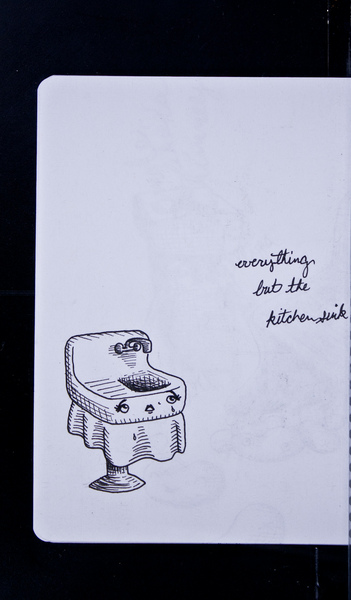 everything
but the
kitchen sink